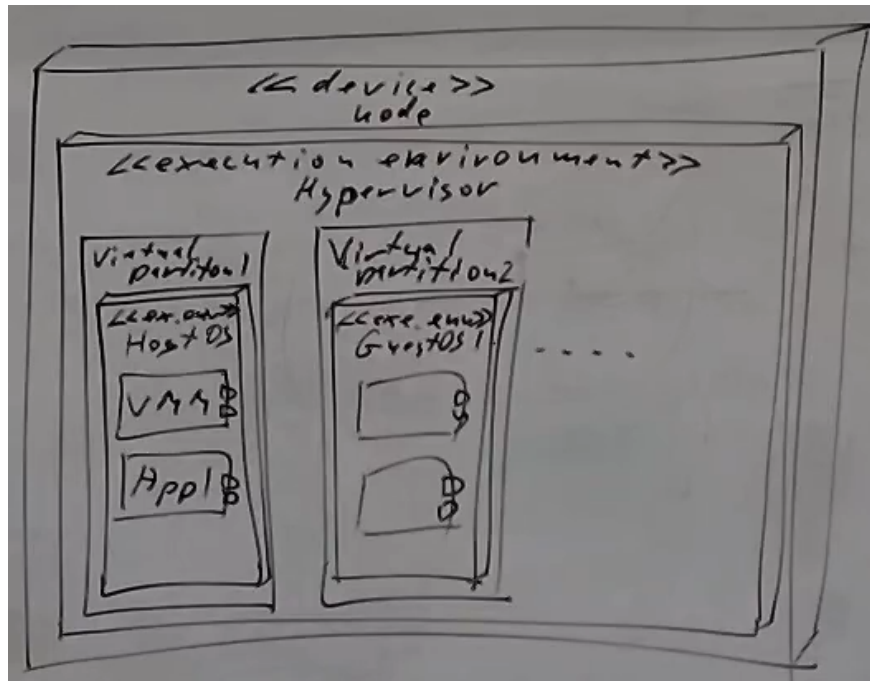 <<device>>
node
<<execution environment>>
Hypervisor
Virtual
partiton1
<<ex.env>>
HostOS
VMM
App1
Virtual
partition2
<<exe.env>>
GuestOS1
.....